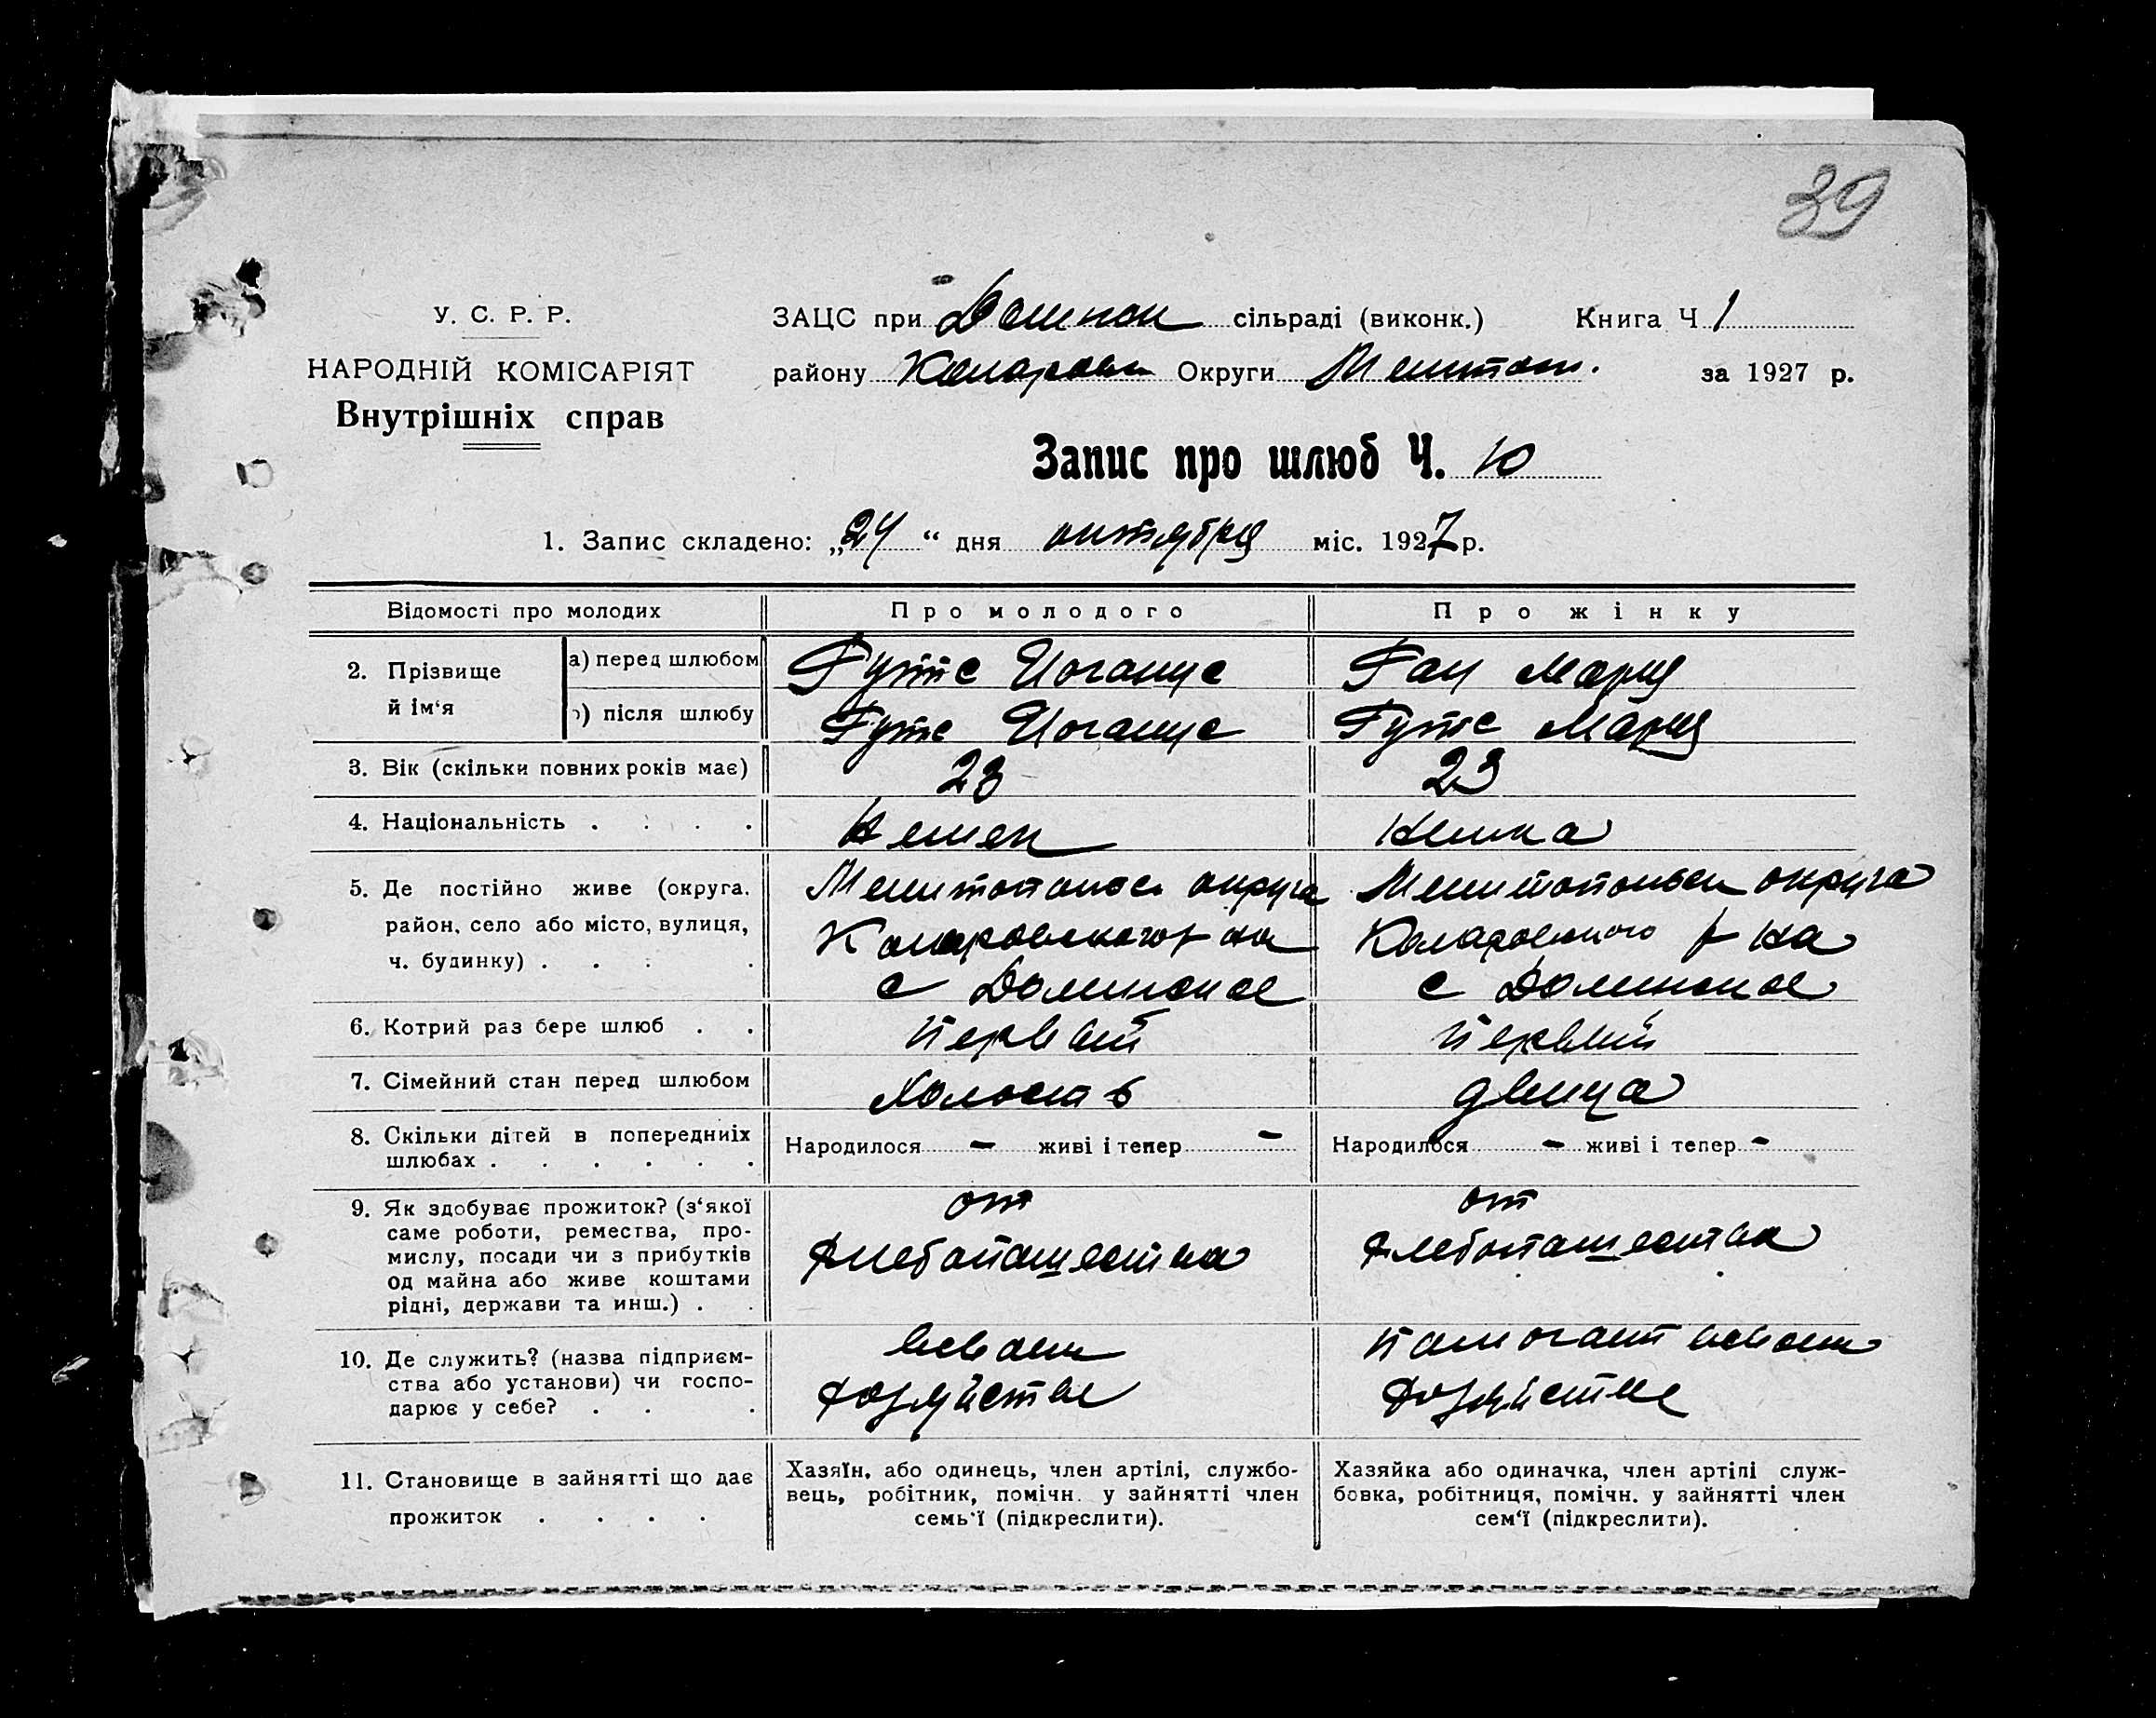 39
У. С. Р. Р.
НАРОДНІЙ КОМІСАРІЯТ
Внутрішніх справ
ЗАЦС при сільраді (виконк.) Книга Ч 1
району Коларовск Округи Мелитоп. за 1927 р.
Запис про шлюб Ч. 10
1. Запис складено: „24“ дня октября міс. 1927 р.
Відомості про молодих
Про молодого
Про жінку
2. Прізвище й ім‘я
а) перед шлюбом
Гутс Иоганус
Ган Мария
б) після шлюбу
Гутс Иоганус
Гутс Мария
3. Вік (скільки повних років має)
23
23
4. Національність . . . .
Немец
Немка
5. Де постійно живе (округа,
район, село або місто, вулиця,
ч. будинку) . . . .
Мелитопольск округа
Коларовского р на
с
Мелитопольск округа
Коларовского р на
с
6. Котрий раз бере шлюб . .
Первый
Первый
7. Сімейний стан перед шлюбом
Холость
двица
8. Скільки дітей в попередниіх
шлюбах . . . . . .
Народилося — живі і тепер —
Народилося — живі і тепер —
9. Як здобуває прожиток? (з‘якої
саме роботи, ремества, про-
мислу, посади чи з прибутків
од майна або живе коштами
рідні, держави та инш.) . .
от
хлебопашества
от
хлебопашества
10. Де служить? (назва підприєм-
ства або установи) чи госпо-
дарює у себе? . . .
всвоем
хозяйстве
помогает всвоем
хозяйстве
11. Становище в зайнятті що дає
прожиток . . . .
Хазяїн, або одинець, член артілі, службо-
вець, робітник, помічн. у зайнятті член
семь‘ї (підкреслити).
Хазяйка або одиначка, член артілі служ-
бовка, робітниця, помічн. у зайнятті член
сем‘ї (підкреслити).